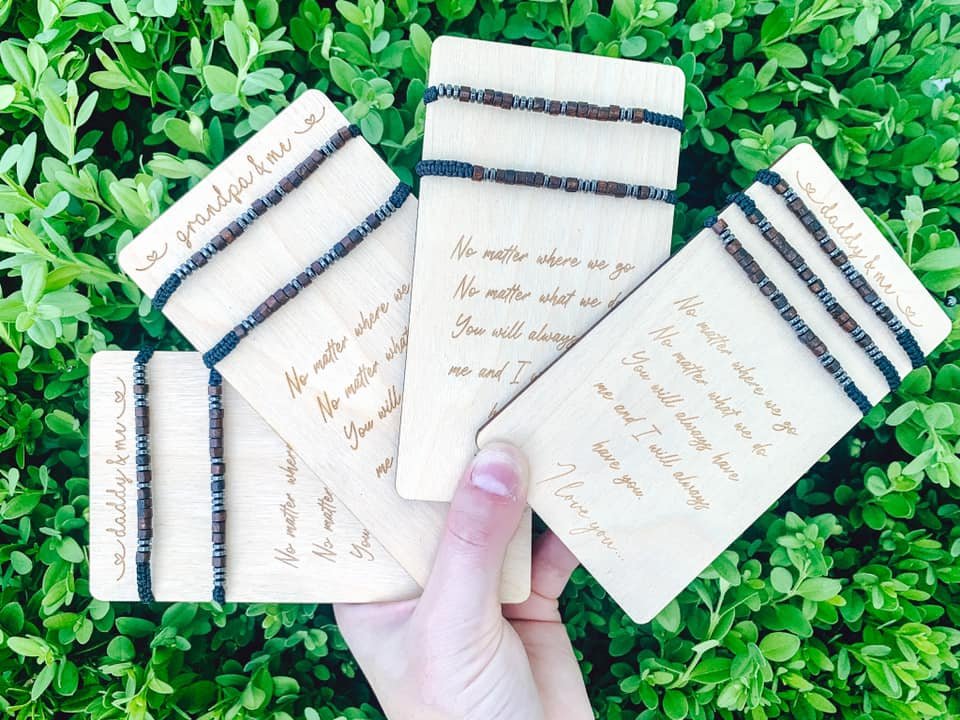 daddy & me
No matter where
No matter
You
grandpa & me
No matter where we
No matter what
You will
me
No matter where we go
No matter what we do
You will always
me and I
daddy & me
No matter where we go
No matter what we do
You will always have
me and I will always
have you
I love you...